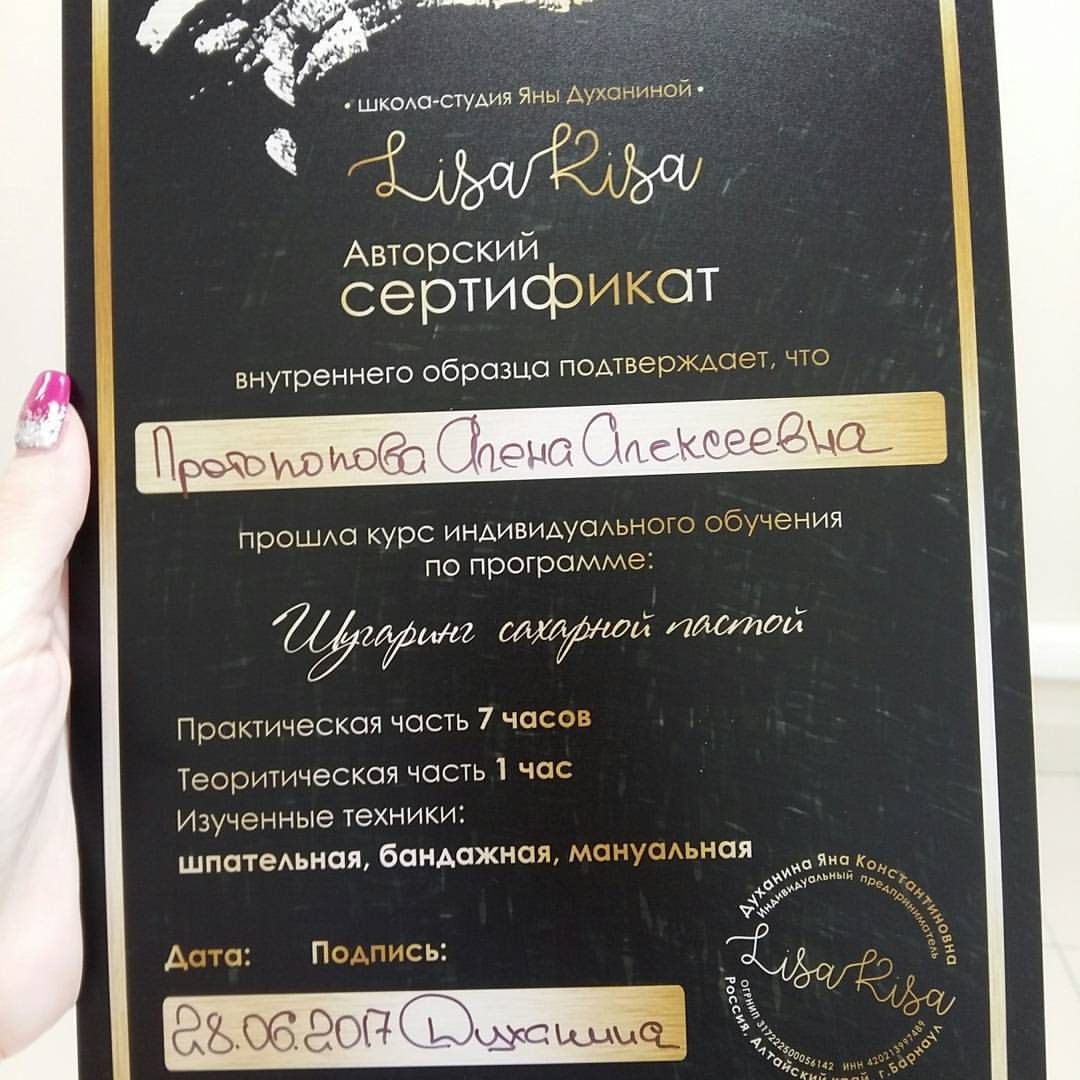 • школа-студия Яны Духаниной •
Lisa Kisa
Авторский
сертификат
внутреннего образца подтверждает, что
Протопопова Алена Алексеевна
прошла курс индивидуального обучения
по программе:
Шугаринг сахарной пастой
Практическая часть 7 часов
Теоритическая часть 1 час
Изученные техники:
шпательная, бандажная, мануальная
Дата: Подпись:
28.06.2017 Духанина
Духанина Яна Константиновна
Индивидуальный предприниматель
Lisa Kisa
ОГРНИП 317222500056142 ИНН 420213997489
Россия, Алтайский край, г.Барнаул